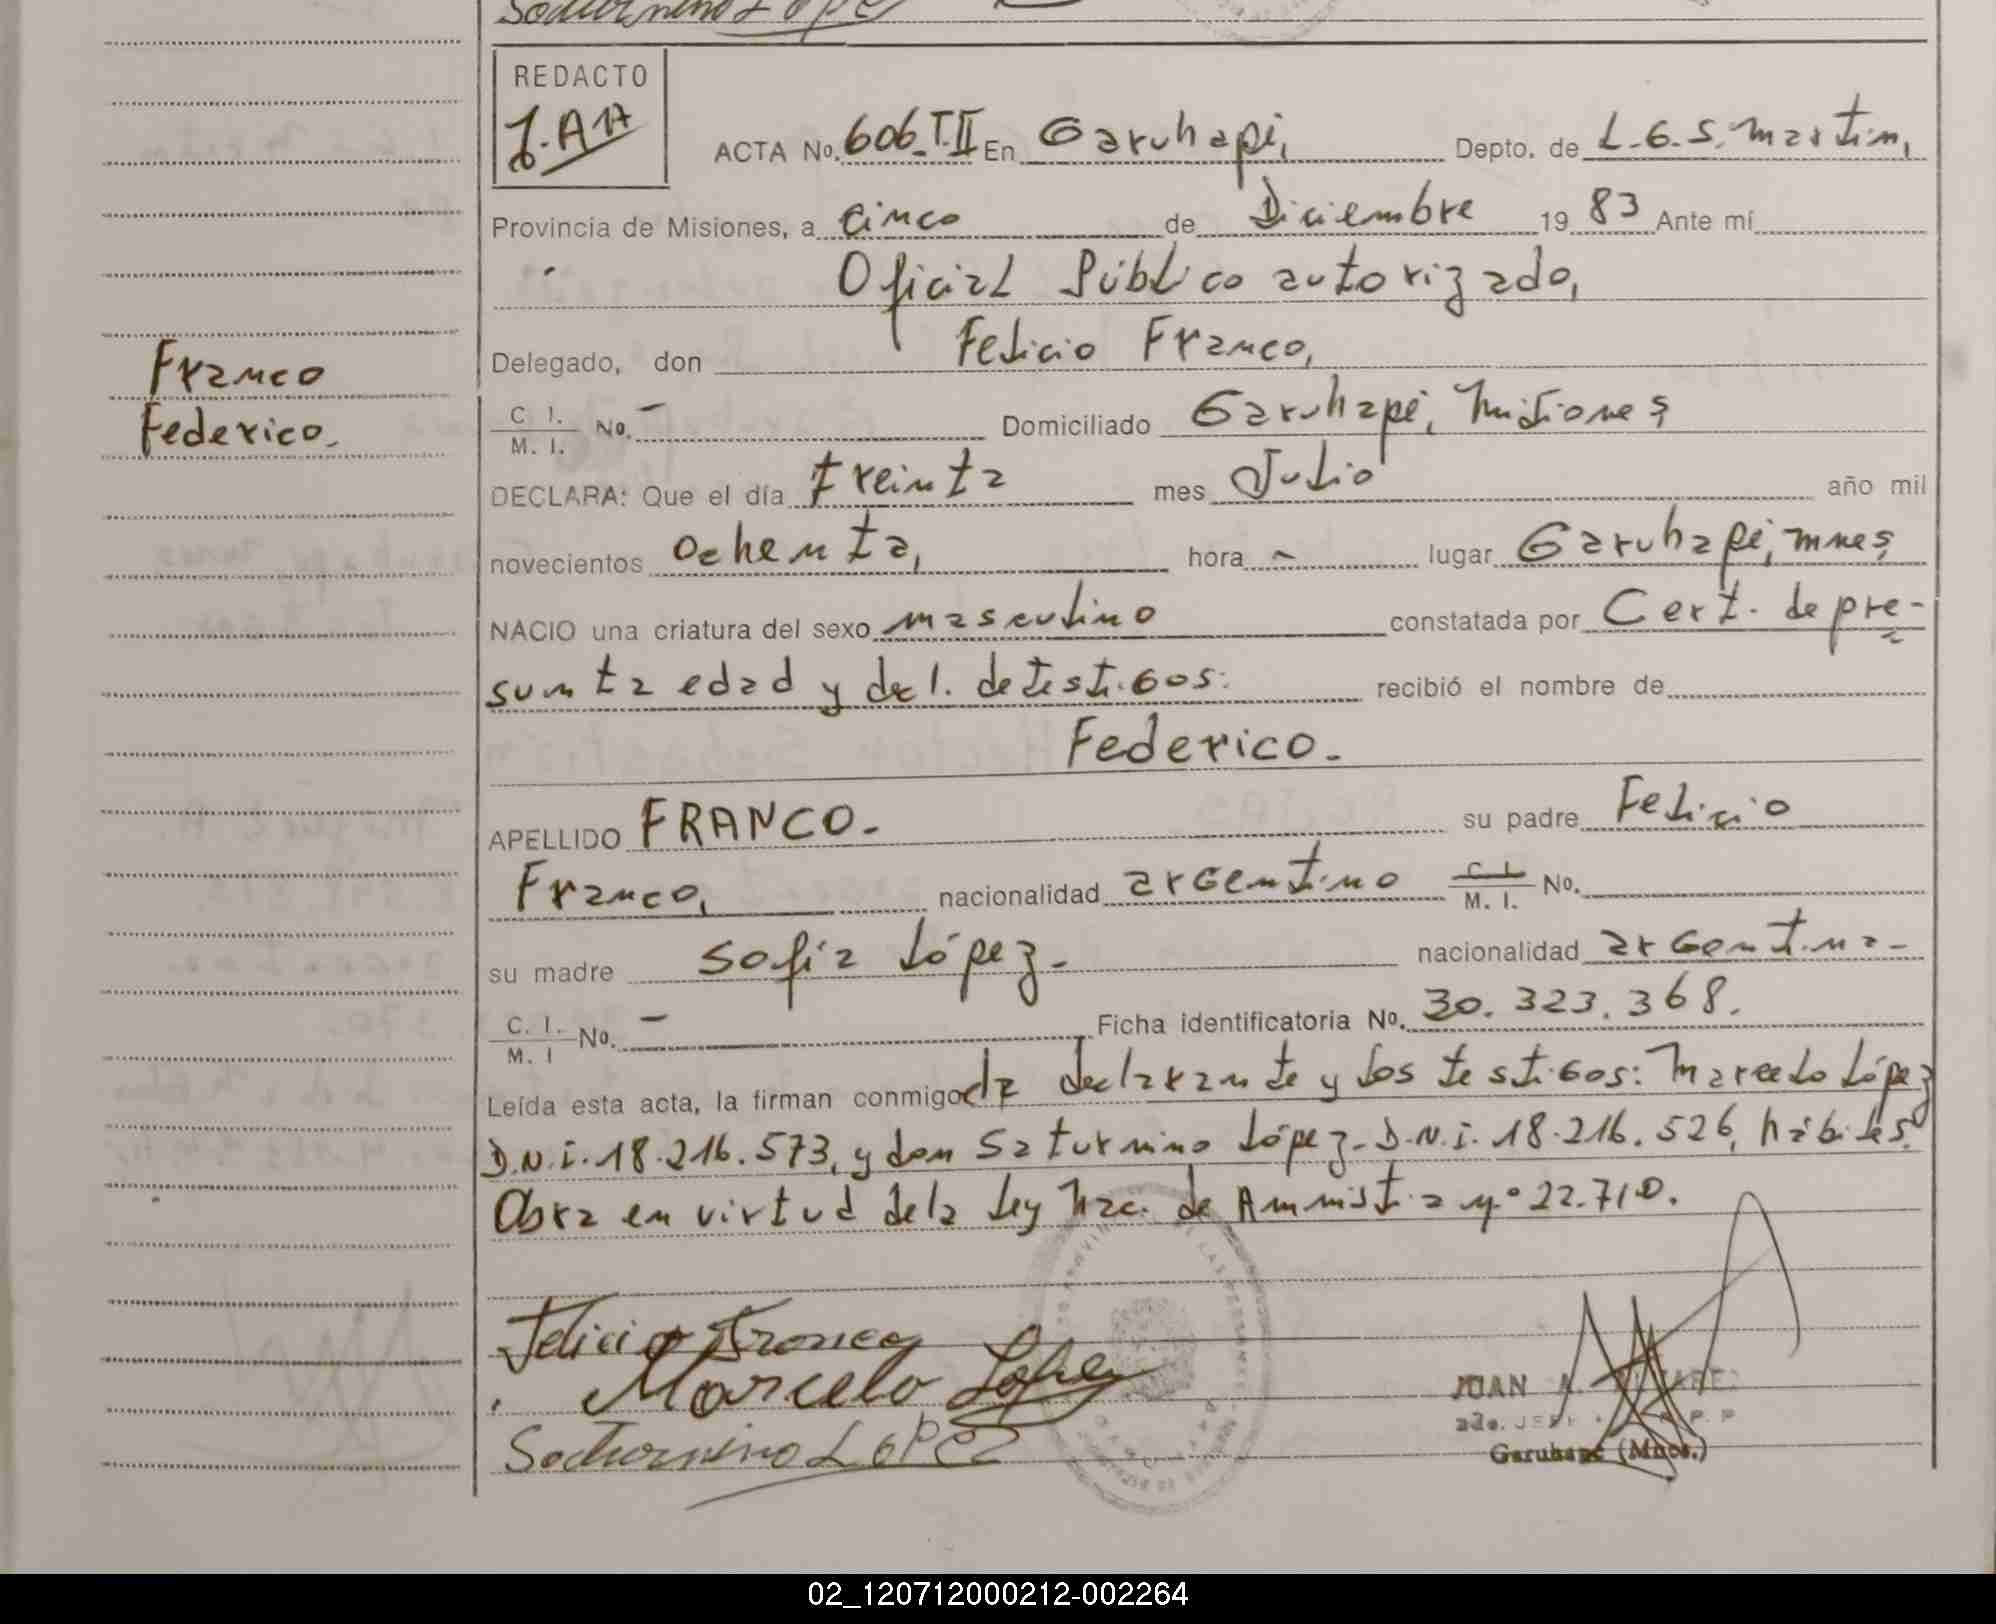 REDACTO
J.AA
ACTA No. 606.T.II En Garuhapé, Depto. de L.G.S. Martin,
Provincia de Misiones, a cinco de Diciembre 1983 Ante mí
Oficial Público autorizado,
Delegado, don Felicio Franco,
Franco
Federico.
C I. M. I. No. - Domiciliado Garuhapé, Misiones
DECLARA: Que el día treinta mes Julio año mil
novecientos ochenta, hora - lugar Garuhapé, mnes
NACIO una criatura del sexo masculino constatada por Cert. de pre-
sunta edad y decl. de testigos: recibió el nombre de
Federico.
APELLIDO FRANCO. su padre Felicio
Franco, nacionalidad argentino C I. M. I. No.
su madre Sofia López. nacionalidad argentina.
C. I. M. I No. - Ficha identificatoria No. 30.323.368.
Leída esta acta, la firman conmigo la declarante y los testigos: Marcelo López
D.N.i. 18.216.573, y don Saturnino López. D.N.i. 18.216.526, hábiles.
Obra en virtud de la Ley Nac. de Ammistia nº 22.710.
Felicio Franco
Marcelo Lopez
Saturnino LoPEZ
JUAN A.
2do. JEFE
Garuhapé (Mnes.)
02_120712000212-002264